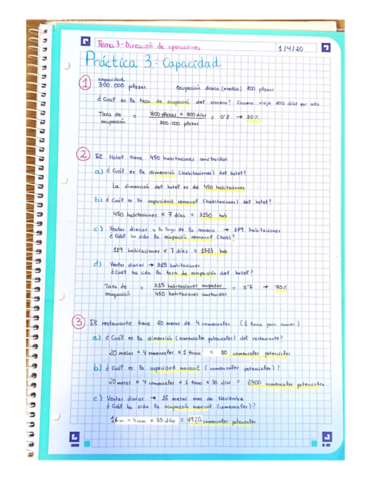 Tema 3 - Dirección de operaciones
1/4/20
Práctica 3: Capacidad
1
capacidad
300.000 plazas
Ocupación diaria (media) 800 plazas
¿Cuál es la tasa de ocupación del crucero? Crucero viaja 300 días por año
Tasa de ocupación = 800 plazas × 300 días / 300.000 plazas = 0'8 → 80%
2 El hotel tiene 450 habitaciones construidas
a) ¿Cuál es la dimensión (habitaciones) del hotel?
La dimensión del hotel es de 450 habitaciones
b) ¿Cuál es la capacidad semanal (habitaciones) del hotel?
450 habitaciones × 7 días = 3150 hab
c) Ventas diarias a lo largo de la semana → 189 habitaciones
¿Cuál ha sido la ocupación semanal (hab)?
189 habitaciones × 7 días = 1323 hab
d) Ventas diarias → 315 habitaciones
¿Cuál ha sido la tasa de ocupación del hotel?
Tasa de ocupación = 315 habitaciones ocupadas / 450 habitaciones construidas = 0'7 → 70%
3 El restaurante tiene 20 mesas de 4 comensales (1 turno por comer)
a) ¿Cuál es la dimensión (comensales potenciales) del restaurante?
20 mesas × 4 comensales × 1 turno = 80 comensales potenciales
b) ¿Cuál es la capacidad mensual (comensales potenciales)
20 mesas × 4 comensales × 1 turno × 30 días = 2400 comensales potenciales
c) Ventas diarias → 16 mesas mes de Noviembre
¿Cuál ha sido la ocupación mensual (comensales)?
16 m × 4 com × 30 días = 1920 comensales potenciales